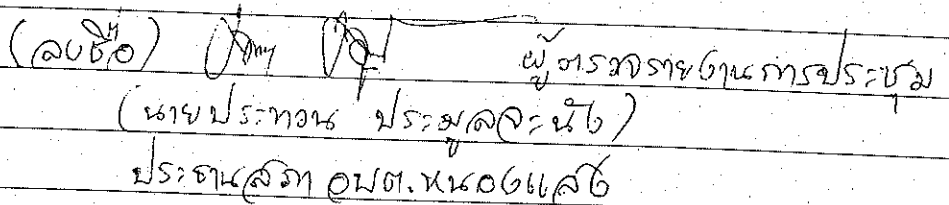 (ลงชื่อ) ผู้ตรวจรายงานการประชุม
(นายประทวน ประมูลจะนัง)
ประธานสภา อบต.หนองแสง